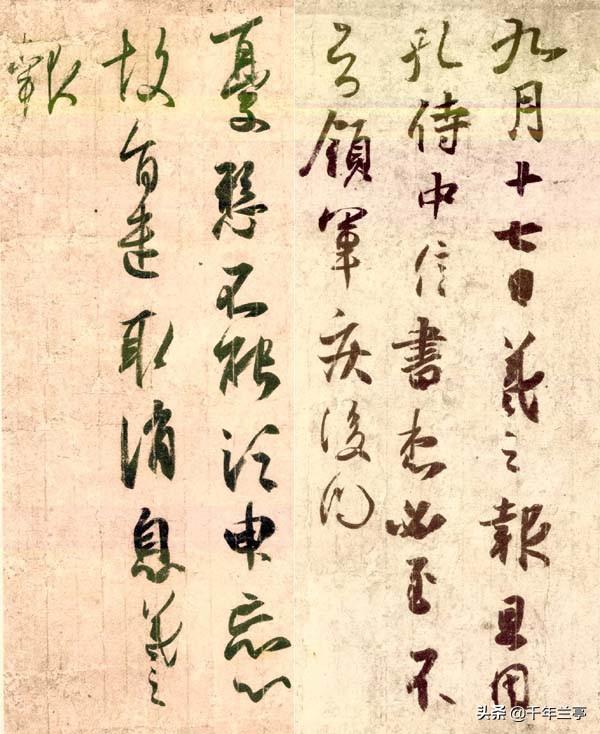 九月十七日羲之報且因
孔侍中信書想必至不
知領軍疾後問
憂懸不能須臾忘心
故旨遣取消息羲之
報
头条 @千年兰亭